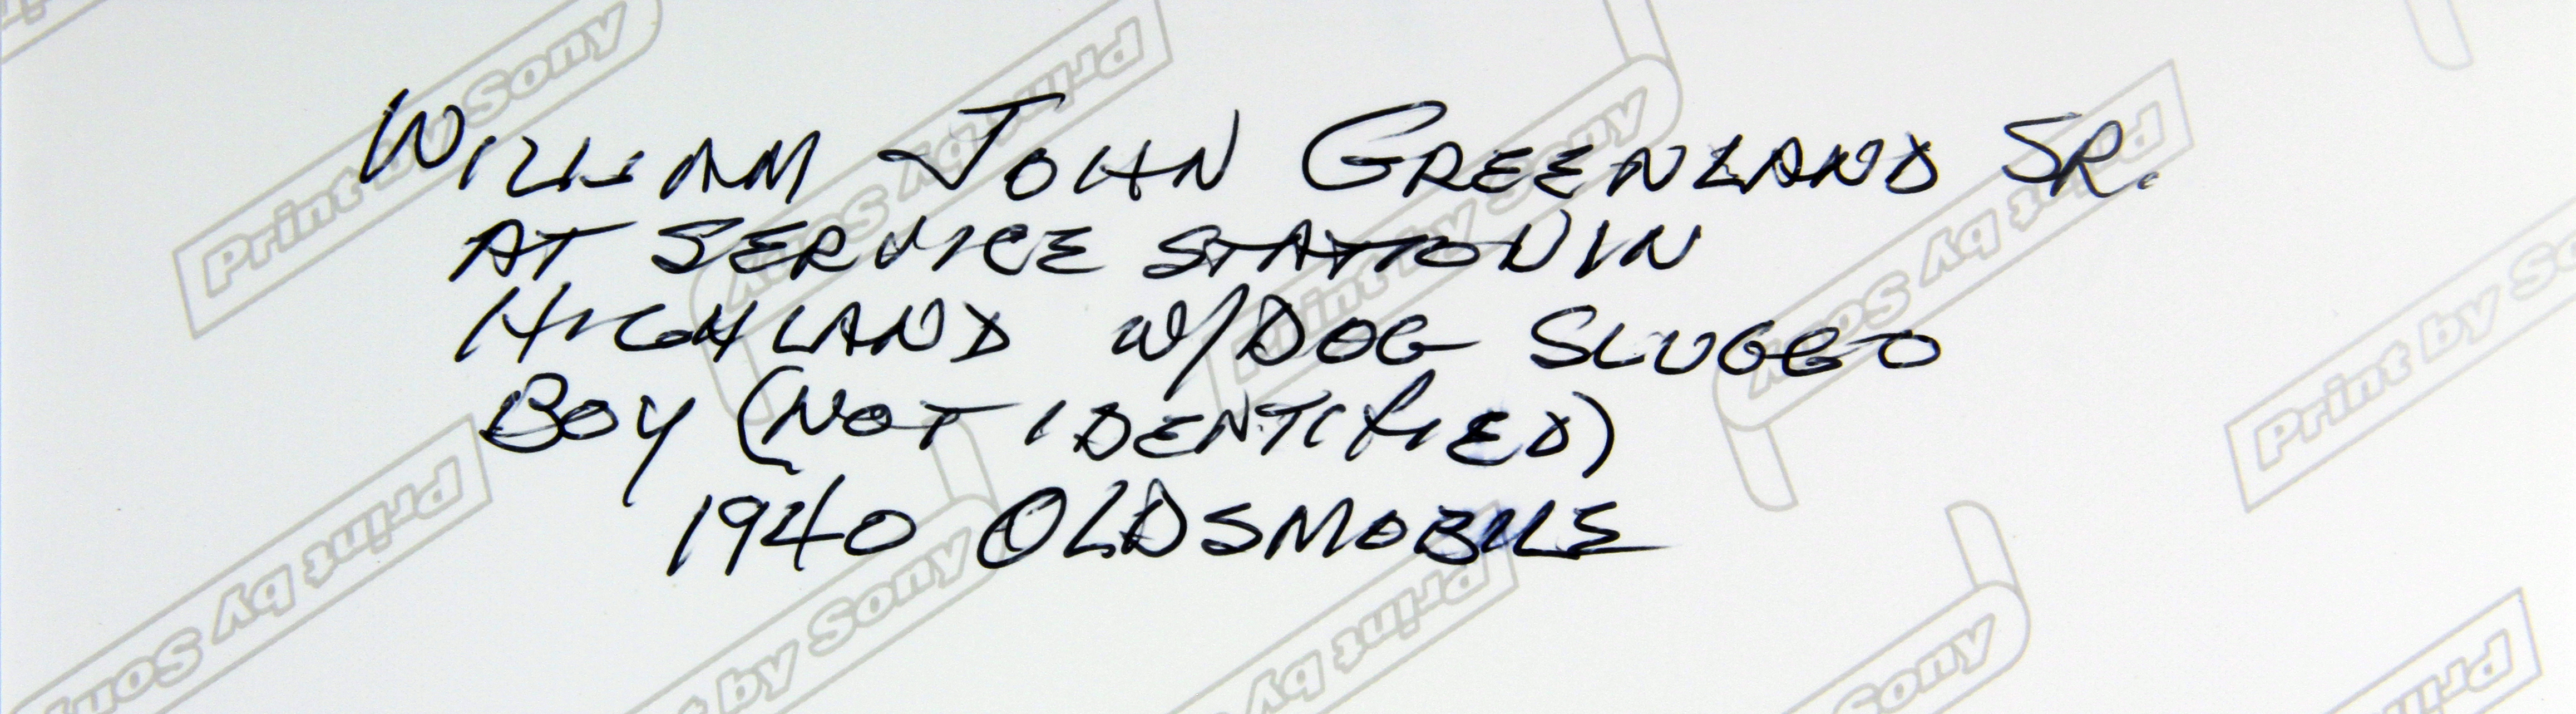 WILLIAM JOHN GREENLAND SR.
AT SERVICE STATION IN
HIGHLAND W/DOG SLUGGO
BOY (NOT IDENTIFIED)
1940 OLDSMOBILE
Print by Sony
Print by Sony
Print by Sony
Print by Sony
Print by So
Print by Son
by Sony
Print by
Sony
Print